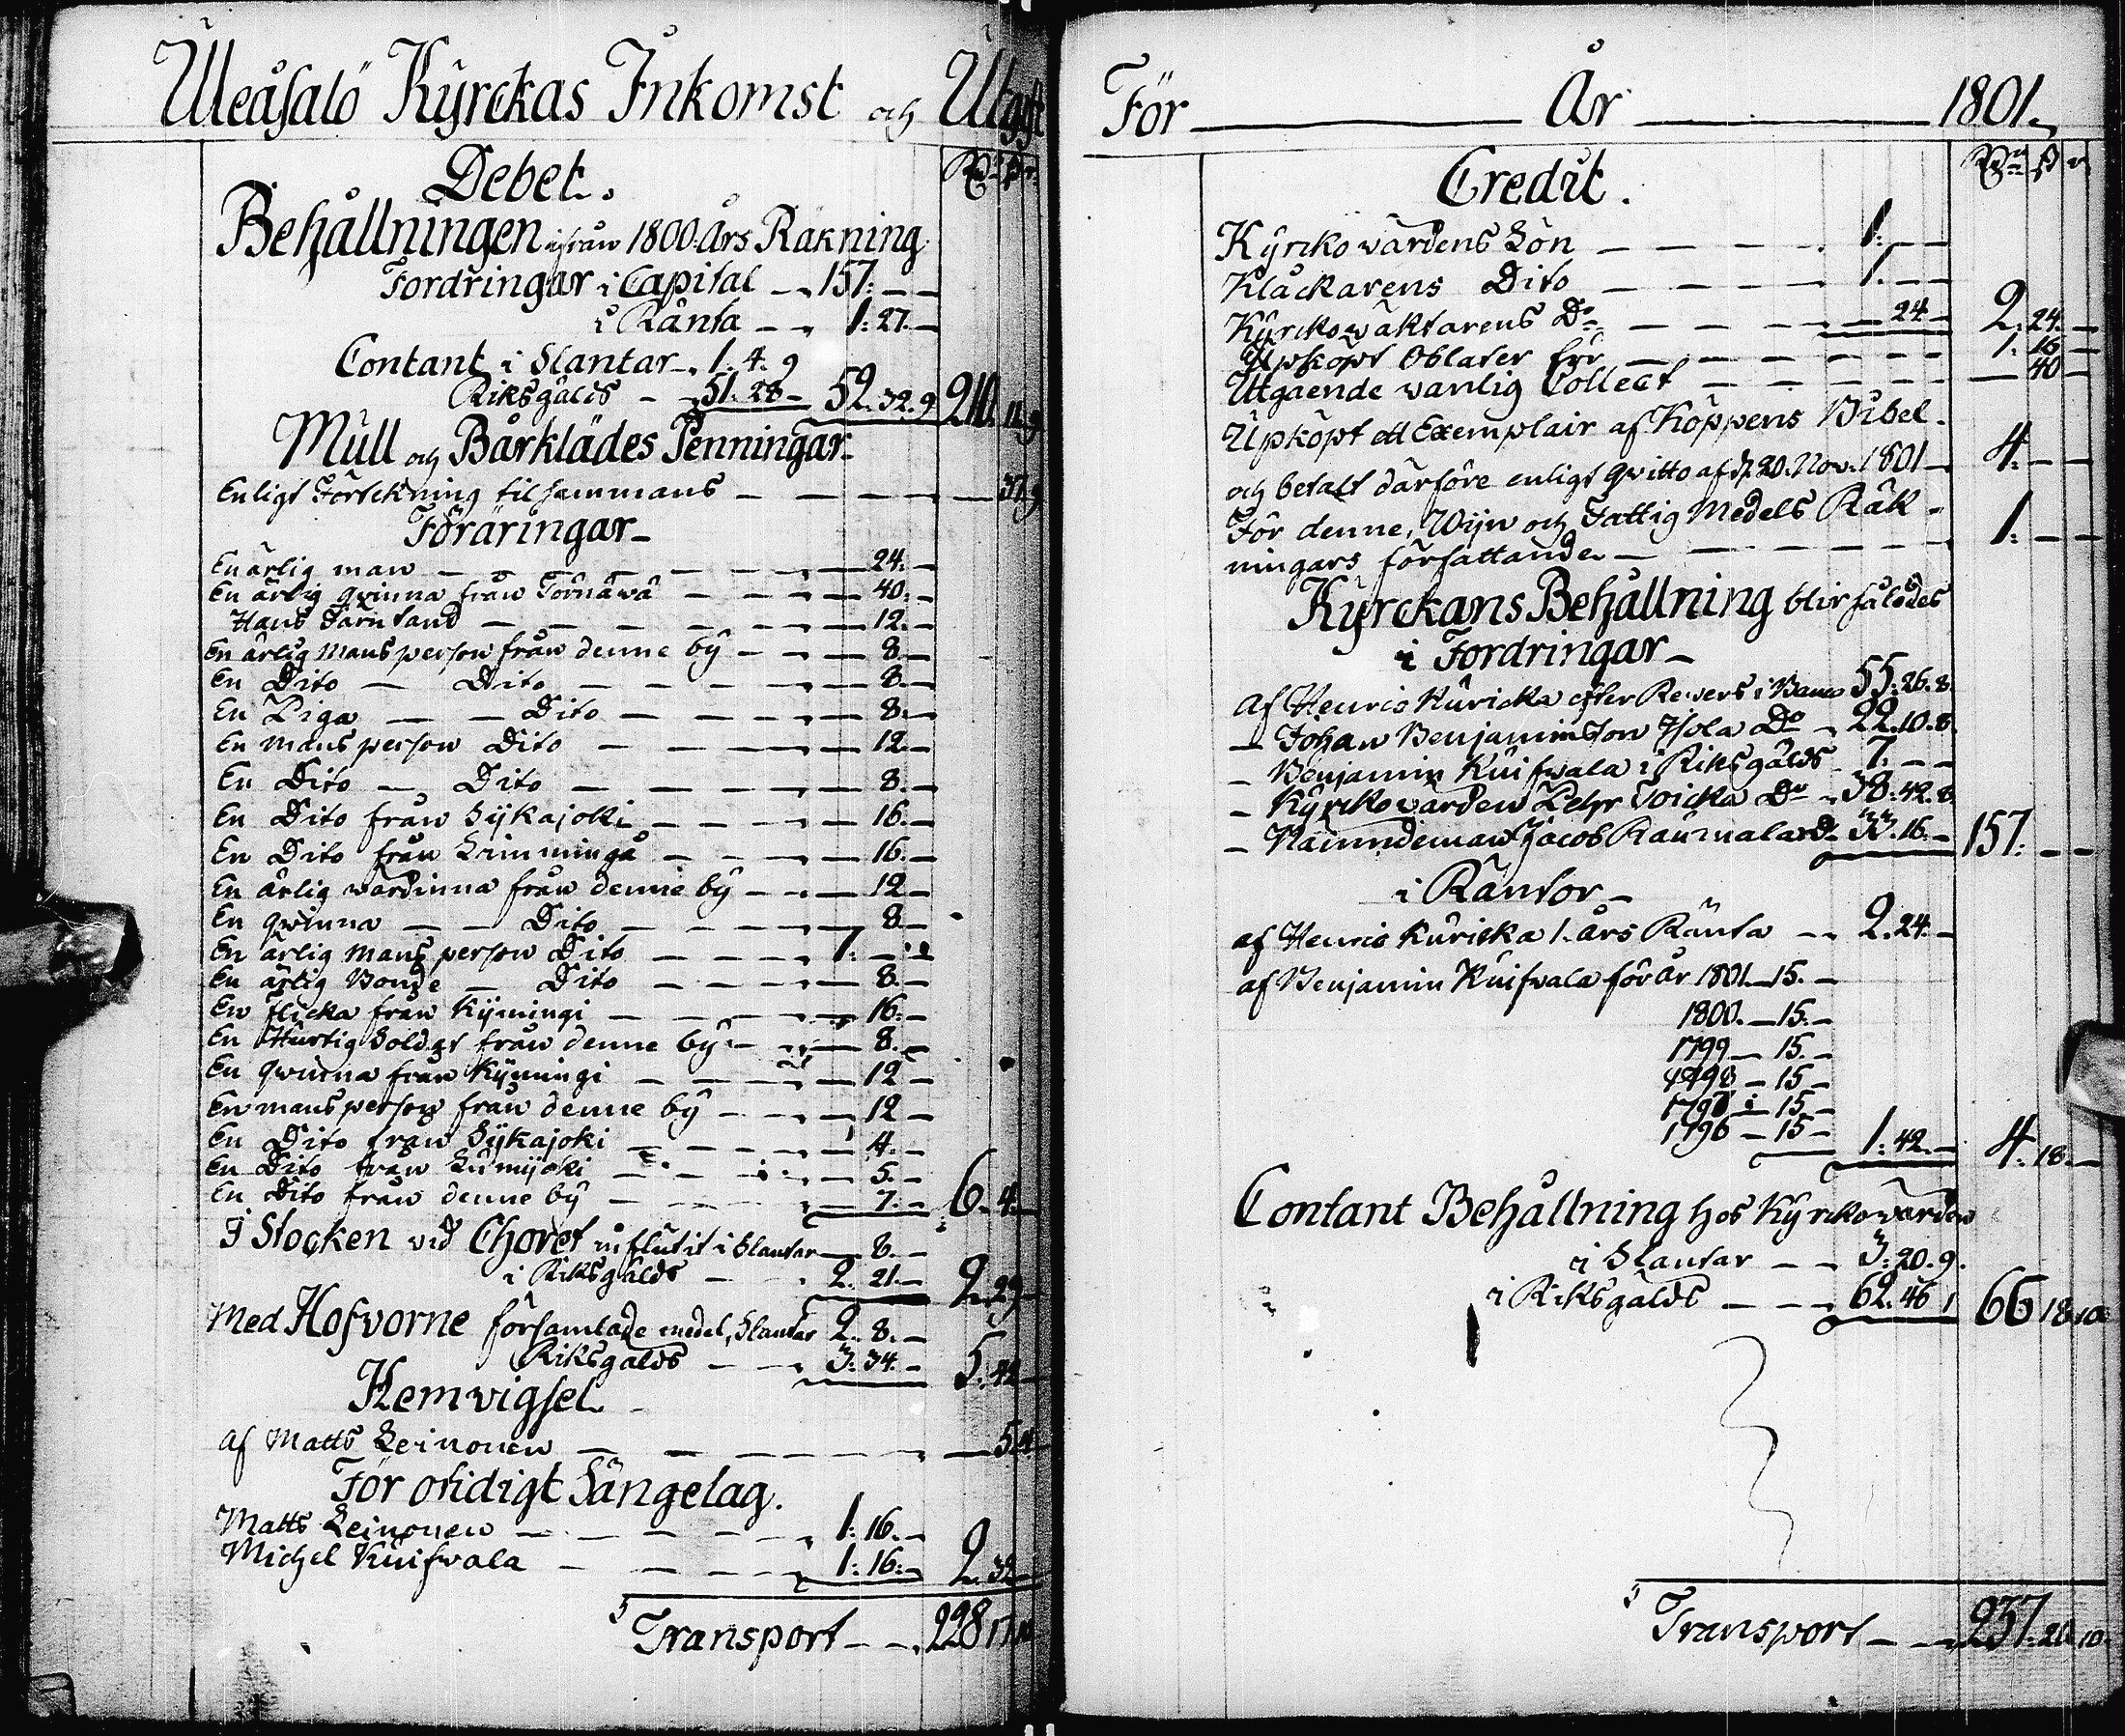 Uleåsalo Kyrckas Inkomst och Utgift
Debet.
Rd. ß. r.
Behållningen ifrån 1800: Års Räkning
Fordringar i Capital — 157: — —
i Ränta — 1: 27. —
Contant i Slantar — 1. 4. 9
Riksgälds — 51. 28 — 52. 32. 9 210. 11. 9
Mull och Bårklädes Penningar —
Enligt Förtekning tilsammans — 37. 9
Föräringar —
En ärlig man — 24. —
En ärlig qwinna från Törnäwä — 40. —
Hans Färntand — 12. —
En ärlig Mansperson från denne by — 8. —
En Dito — Dito — 8. —
En Piga — Dito — 8. —
En mansperson Dito — 12. —
En Dito — Dito — 8. —
En Dito från Sijkajoki — 16. —
En Dito från Limmingå — 16. —
En ärlig wärdinna från denne by — 12 —
En qwinna — Dito — 8. —
En ärlig Mansperson Dito — 1. — —
En ärlig Bonde — Dito — 8. —
En flicka från Kijmingi — 16. —
En Hurtig Soldat från denne by — 8. —
En qwinna från Kijmingi — 12 —
En mansperson från denne by — 12 —
En Dito från Sijkajoki — 4. —
En Dito från Lumijoki — 5. —
En Dito från denne by — 7. — 6. 4. —
I Stocken wid Choret influtit i Slantar — 8. —
i Riksgälds — 2. 21. — 2. 29 —
Med Hofvorne församlade medel, Slantar 2. 8. —
Riksgälds — 3. 34. — 5. 42 —
Hemvigsel
af Matts Leinonen — 5.
För otidigt Sängelag.
Matts Leinonen — 1. 16. —
Michel Kuifwala — 1. 16. — 2. 32 —
Transport — 228. 17.
För — År — 1801.
Credit.
Rd. ß. r.
Kyrckowärdens Lön — 1. — —
Klåckarens Dito — 1. — —
Kyrckowäktarens Do — 24 — 2. 24. —
Upköpt Oblater för — 1. 16 —
Utgående wanlig Collect — 40 —
Upköpt ett Exemplair af Köppens Bibel
och betalt därföre enligt qwitto af d. 20. Nov. 1801 — 4. — —
För denne, Wijn och Fattig Medels Räk-
ningars författande — 1. — —
Kyrckans Behållning blir således
i Fordringar —
Af Henric Kuricka efter Revers i Banco 55. 26. 8.
— Johan Benjaminsson Isola Do — 22. 10. 8.
— Benjamin Kuifwala i Riksgälds 7. — —
— Kyrckowärden Pehr Toicka Do — 38. 42. 8.
— Nämndeman Jacob Raumala Do 33. 16. — 157. — —
i Räntor —
af Henric Kuricka 1. års Ränta — 2. 24. —
af Benjamin Kuifwala för år 1801 — 15. —
1800. — 15. —
1799 — 15. —
1798 — 15 —
1797 — 15 —
1796 — 15 — 1. 42. — 4. 18. —
Contant Behållning hos Kyrckowärden
i Slantar — 3. 20. 9.
i Riksgälds — 62. 46 1 66 18. 10
Transport — 237. 21. 10.